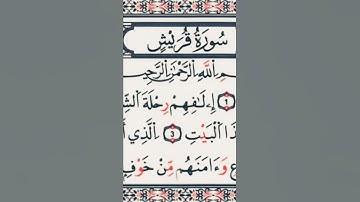 سُورَةُ قُرَيْشٍ
اللَّهِ الرَّحْمَٰنِ الرَّحِي
١ إِۦلَٰفِهِمْ رِحْلَةَ
ٱلْبَيْتِ ٣ ٱلَّذِي
وَءَامَنَهُم مِّنْ خَوْفٍ